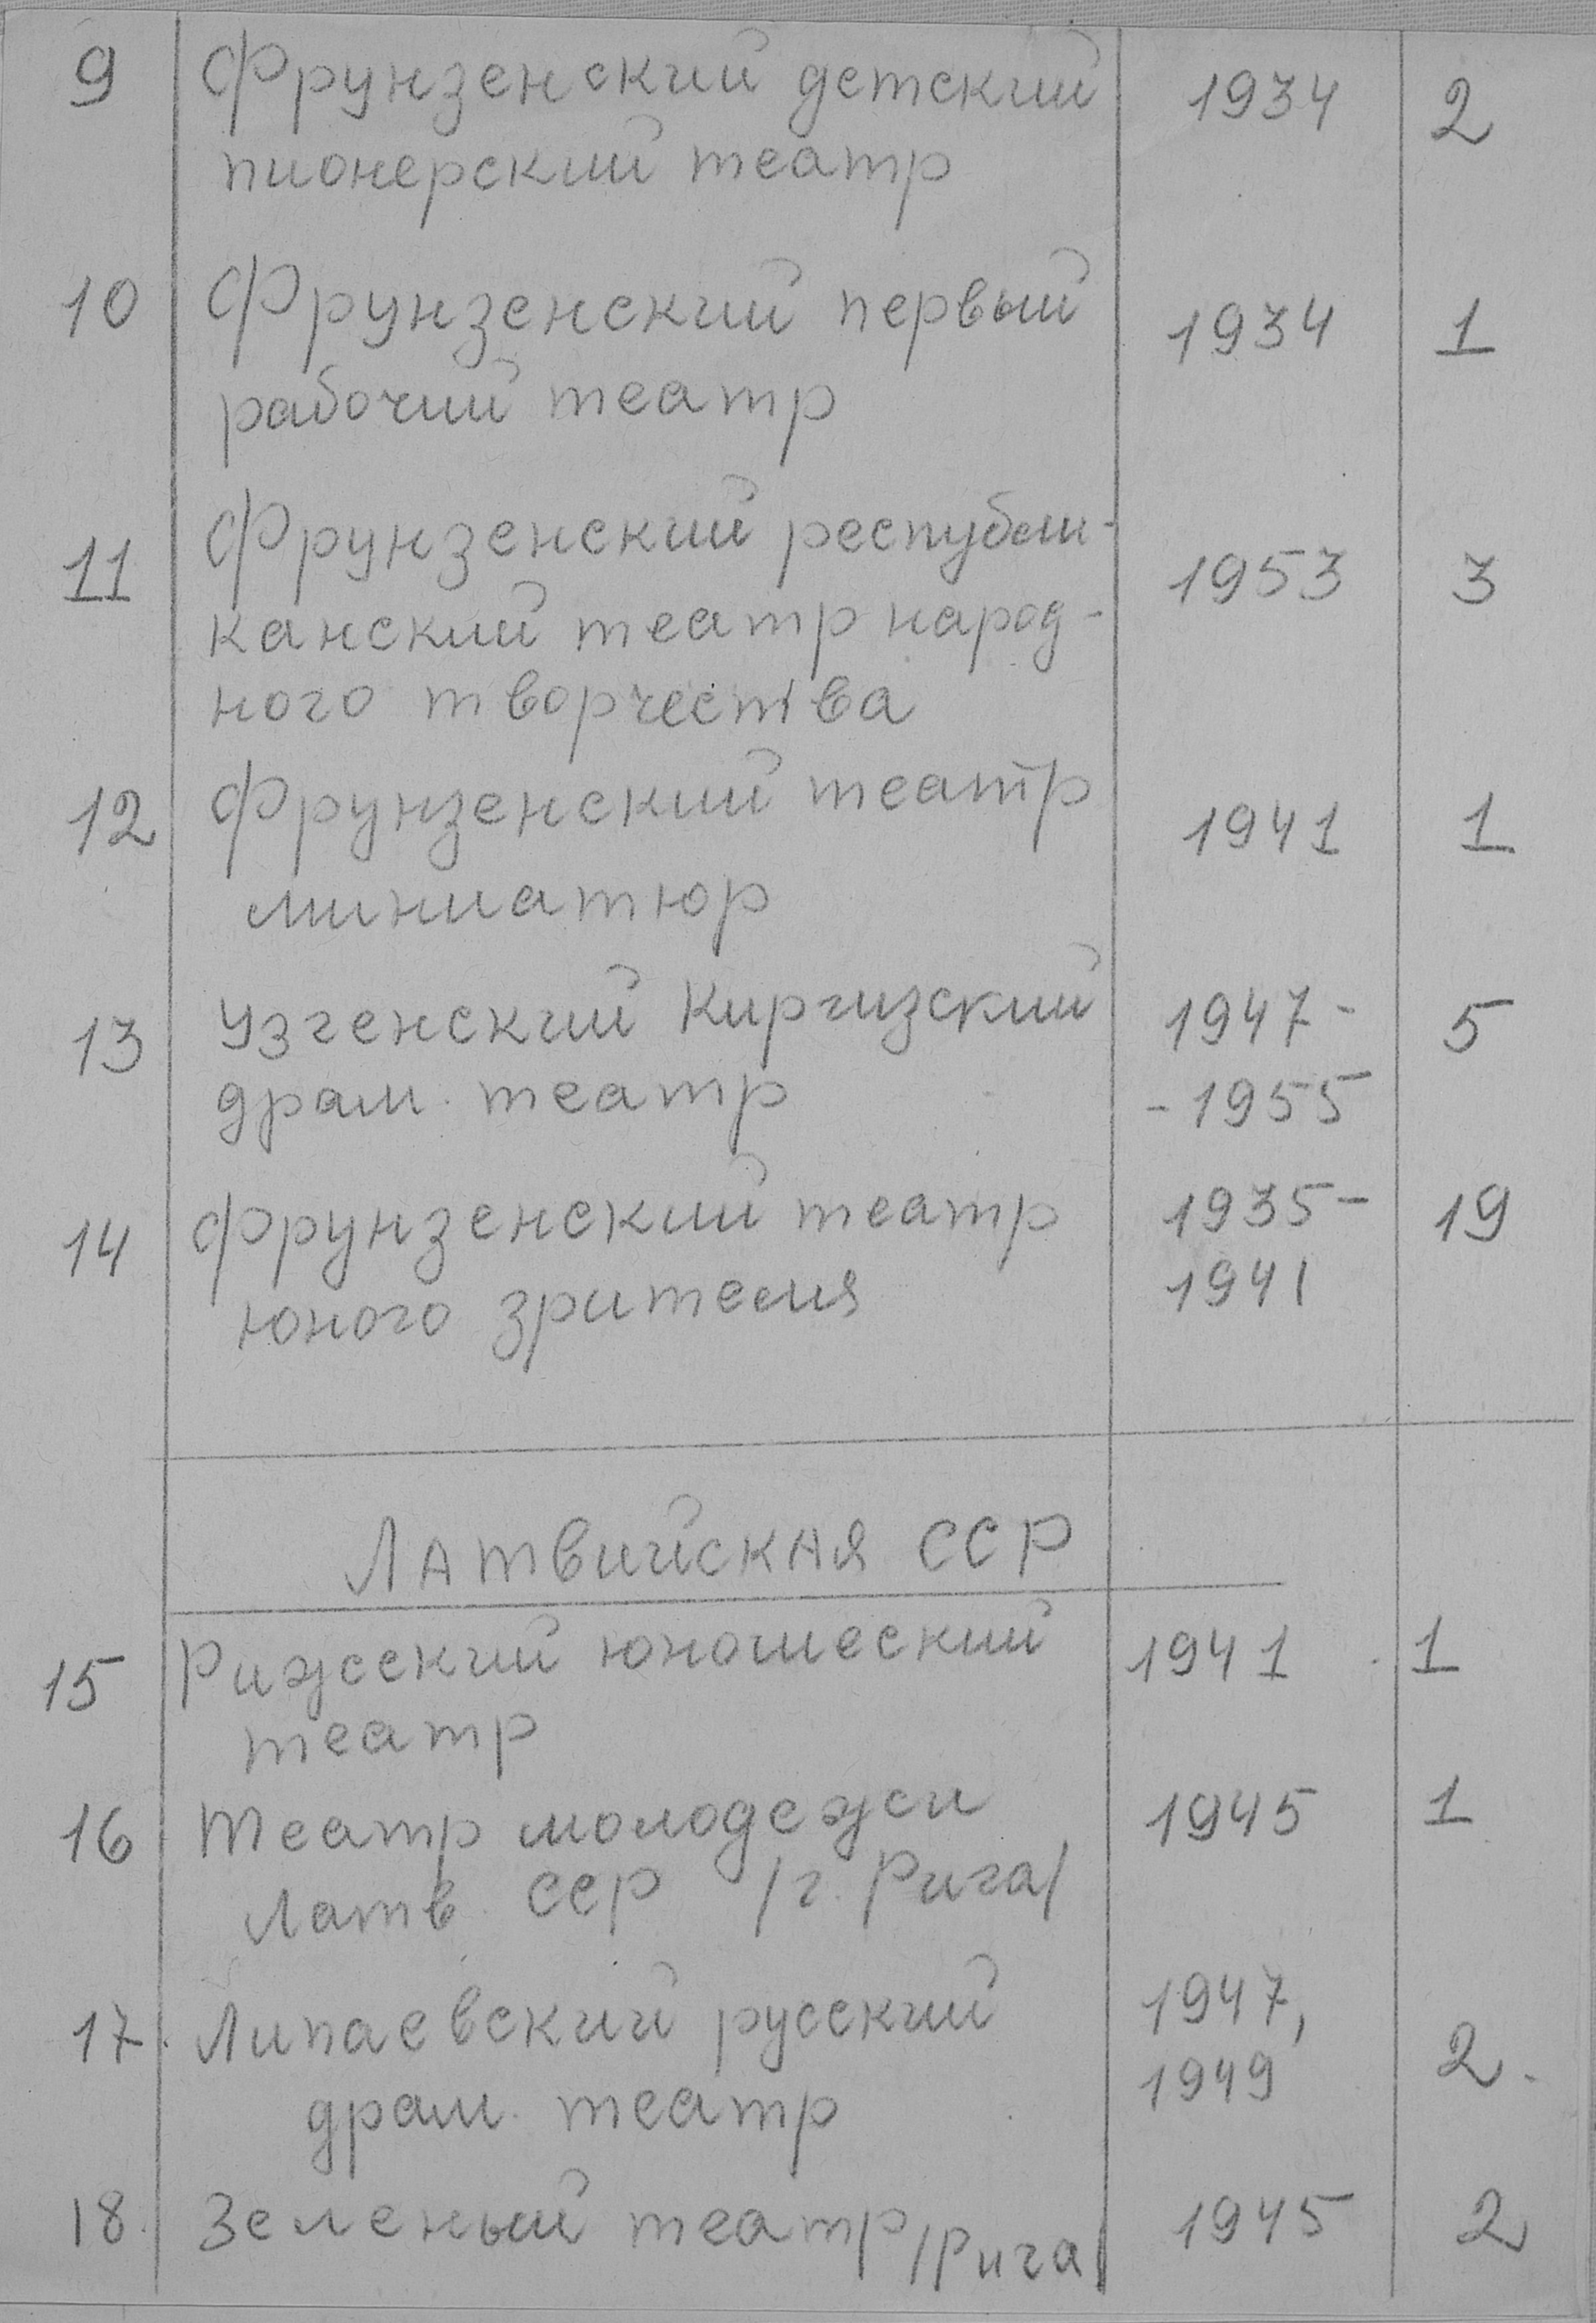 9 Фрунзенский детский 1934 2
пионерский театр
10 Фрунзенский первый 1934 1
рабочий театр
11 Фрунзенский республи- 1953 3
канский театр народ-
ного творчества
12 Фрунзенский театр 1941 1
миниатюр
13 Узгенский Киргизский 1947- 5
драм. театр -1955
14 Фрунзенский театр 1935- 19
юного зрителя 1941
Латвийская ССР
15 Рижский юношеский 1941 1
театр
16 Театр молодежи 1945 1
Латв. ССР /г. Рига/
17. Липаевский русский 1947, 2.
драм. театр 1949
18. Зеленый театр /Рига/ 1945 2